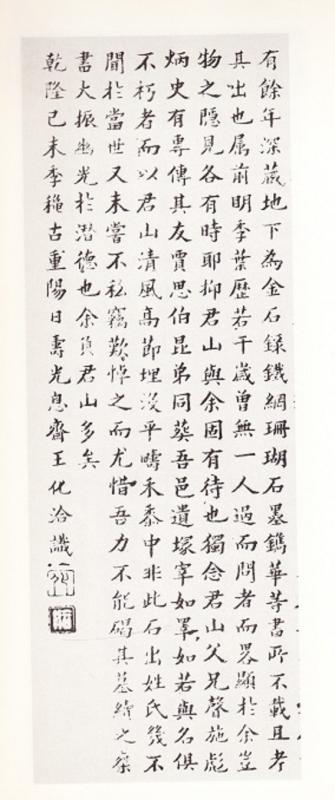 有餘年深藏地下為金石錄鐵網珊瑚石墨鐫華等書所不載且考
其出也属前明季葉歷若干歲曾無一人過而問者而畧顯於余豈
物之隱見各有時耶抑君山與余固有待也獨念君山父兄聲施彪
炳史有專傳其友賈思伯昆弟同葬吾邑遺塚宰如睪如若與名俱
不朽者而以君山清風高節埋沒平疇禾黍中非此石出姓氏幾不
聞於當世又未嘗不私竊歎悼之而尤惜吾力不能碣其墓續之祭
書大振幽光於潛德也余負君山多矣
乾隆己未季穐古重陽日壽光息齋王化洽識